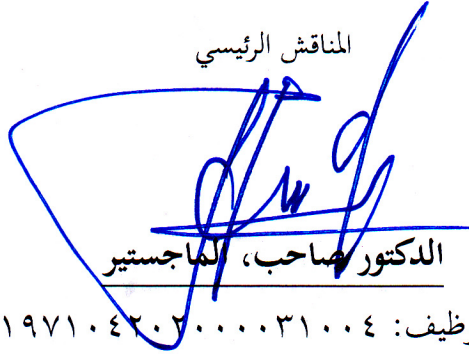 المناقش الرئيسي
الدكتور صاحب، الماجستير
ظيف: ١٩٧١٠٤٢٠٢٠٠٠٠٣١٠٠٤